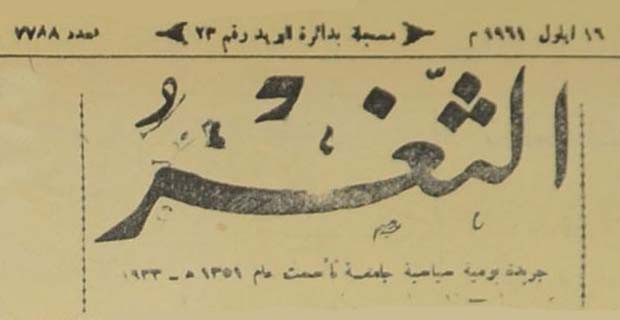 ١٦ ايلول ١٩٦١ م مسجلة بدائرة البريد رقم ٢٣ العدد ٧٧٨٨
الثَّغْرُ
جريدة يومية سياسية جامعة تأسست عام ١٣٥١ ه - ١٩٣٣